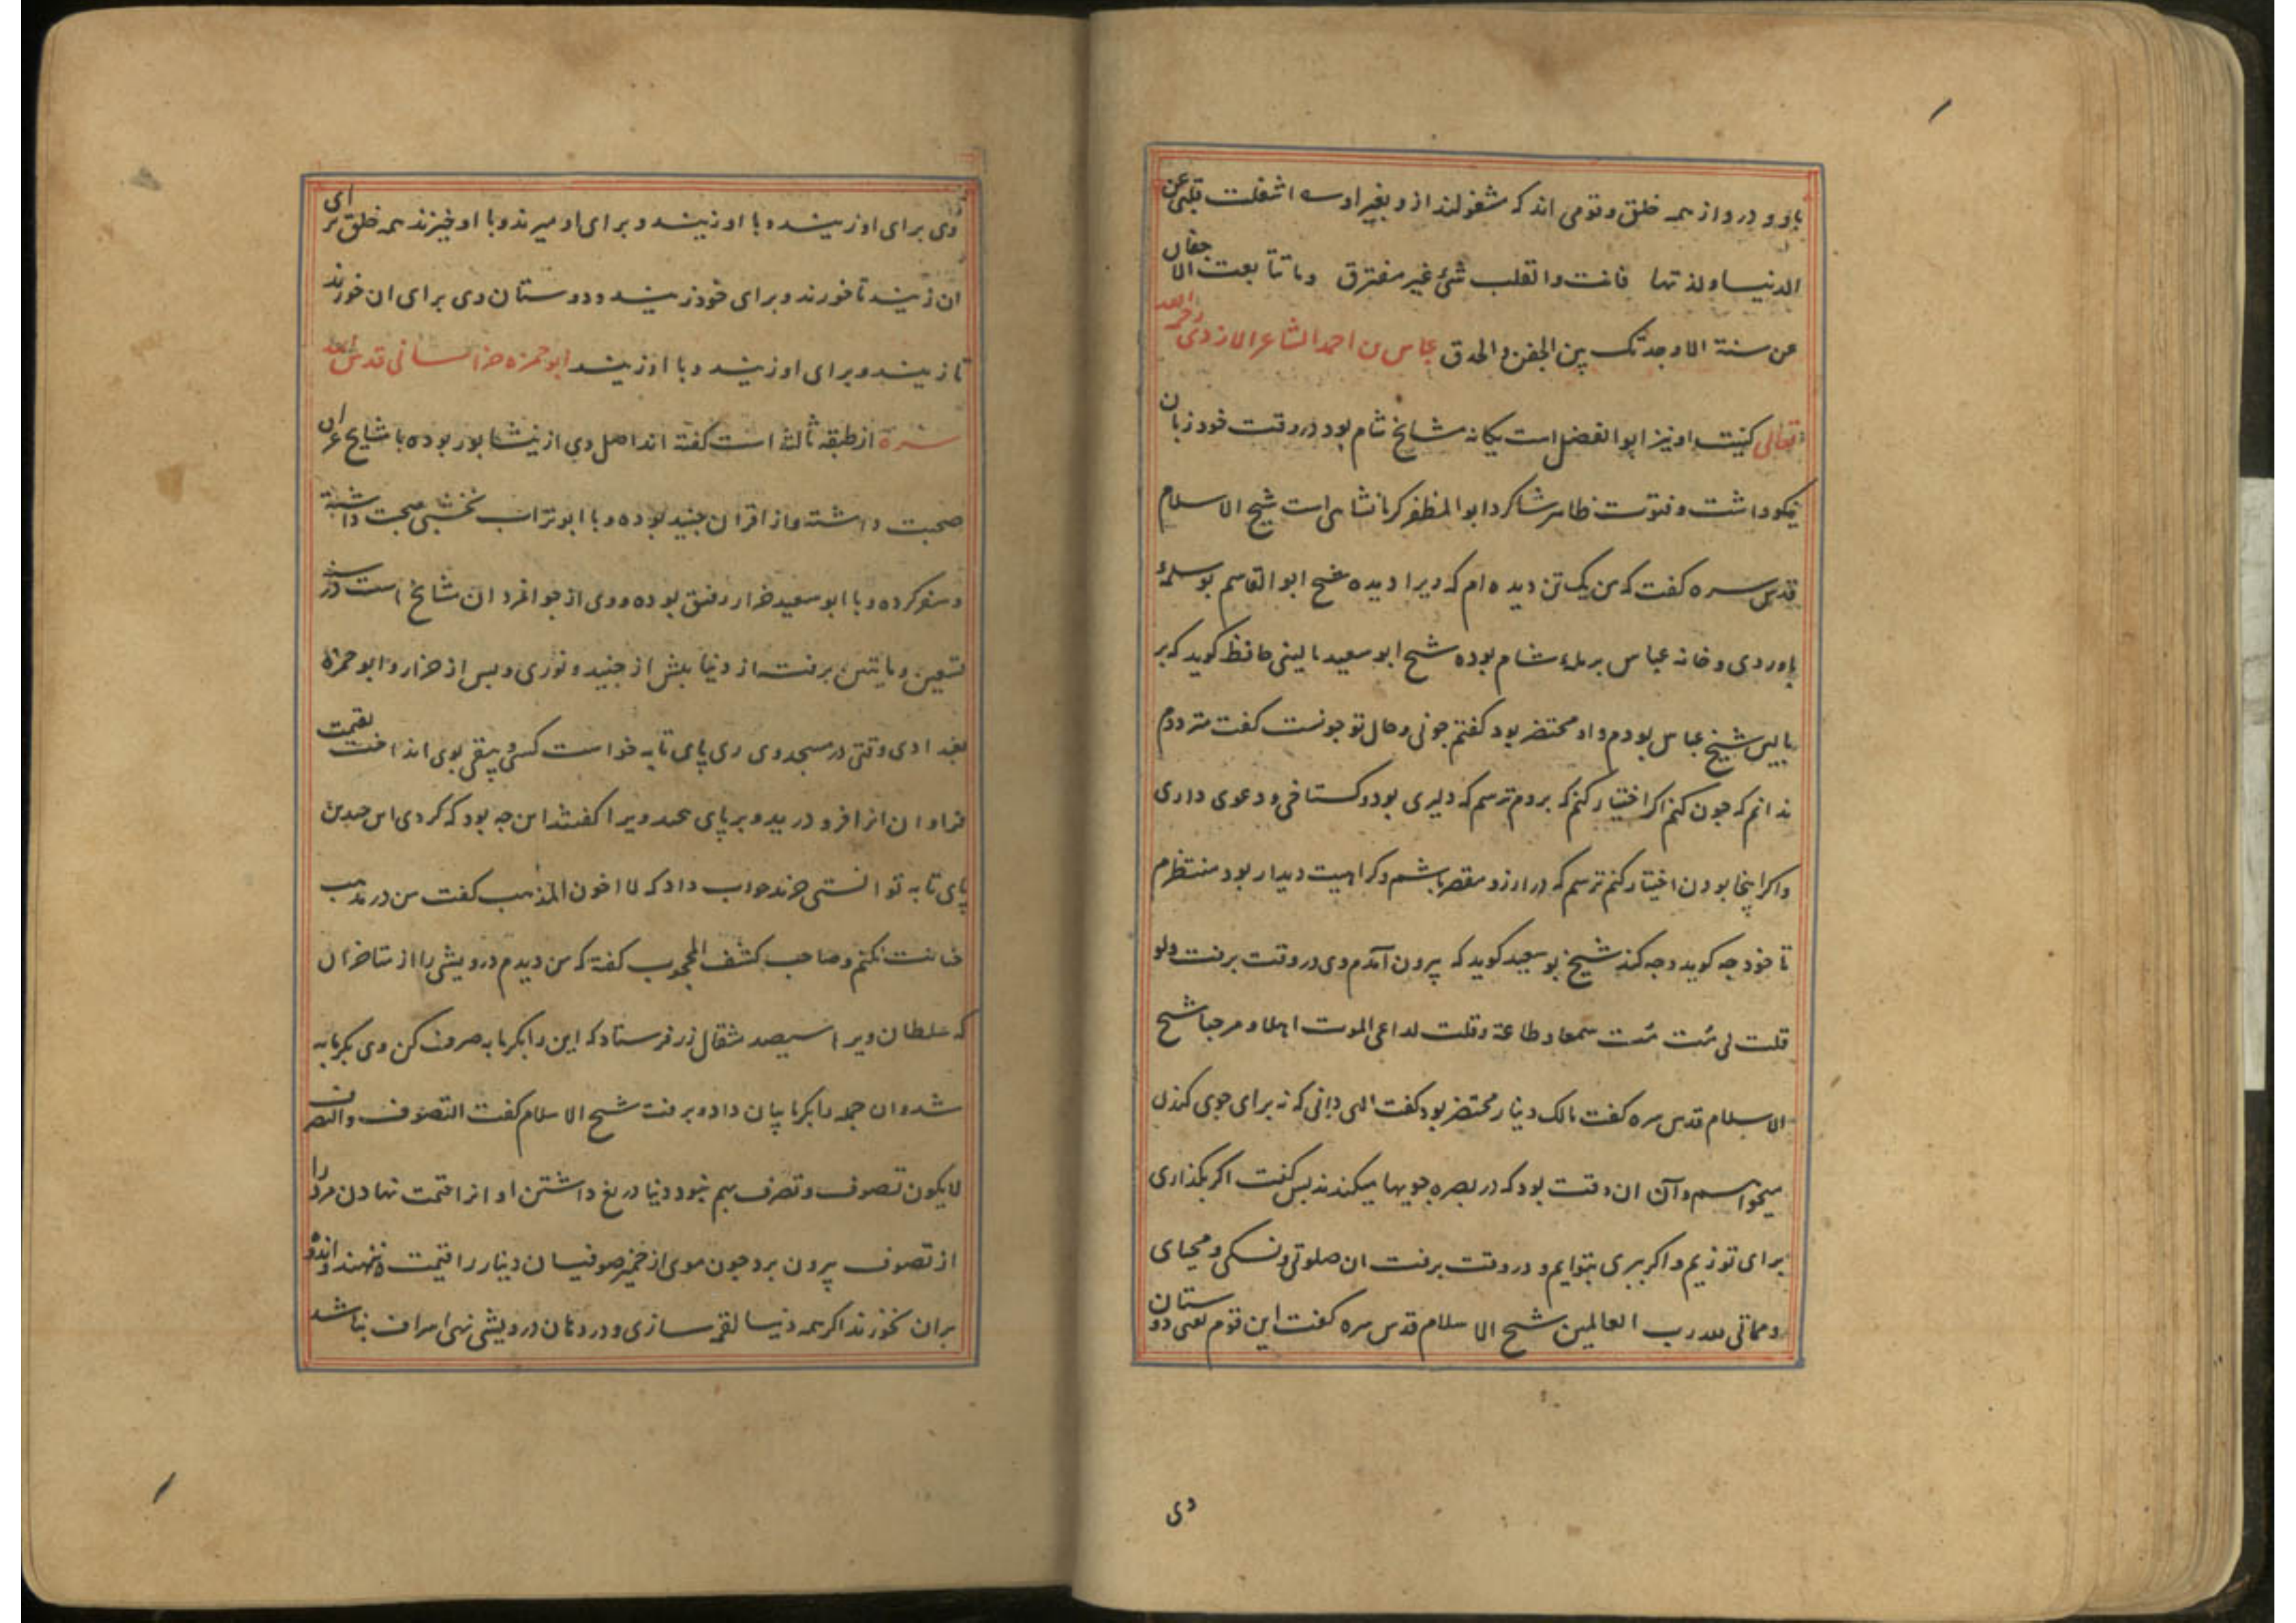 باو و در و از همه خلق و قومی اند که مشغولند از و بغیر او اشغلت قلبی عن
الدنیا و لذتها فانت والقلب شئ غیر مفترق و ما تتابعت الاجفان
عن سنة الا وجدتک بین الجفن والحدق عباس بن احمد الشاعر الازدی رحمه الله
تعالی کنیت او نیز ابوالفضل است یکانه مشایخ شام بود در وقت خود زبان
نیکو داشت و فتوت ظاهر شاکرد ابوالمظفر کرمانشاهی است شیخ الاسلام
قدس سره کفت که من یک تن دیده ام که ویرا دیده شیخ ابوالقاسم بوسلمه
باوردی و خانه عباس برمله شام بوده شیخ ابوسعید مالینی حافظ کوید که بر
بالین شیخ عباس بودم و او محتضر بود کفتم چونی و حال تو چونست کفت مترددم
ندانم که چون کنم اکر اختیار کنم که بروم ترسم که دلیری بود و کستاخی و دعوی داری
و اکر اینجا بودن اختیار کنم ترسم که در ارزو مقصر باشم و کراهیت دیدار بود منتظرم
تا خود چه کوید و چه کند شیخ بوسعید کوید که بیرون آمدم وی در وقت برفت ولو
قلت لی مُت مُت سمعا و طاعة وقلت لداعی الموت اهلا و مرحبا شیخ
الاسلام قدس سره کفت مالک دینار محتضر بود کفت الهی دانی که نه برای جوی کندن
میخواسم و آن ان وقت بود که در بصره جویها میکندند پس کفت اکر بکذاری
برای تو زیم و اکر ببری بتو ایم و در وقت برفت ان صلوتی و نسکی و محیای
و مماتی لله رب العالمین شیخ الاسلام قدس سره کفت این قوم یعنی دوستان
وی
وی برای او زیند و با او زیند و برای او میرند و با او خیزند همه خلق برای
ان زیند تا خورند و برای خود زیند و دوستان وی برای ان خورند
تا زیند و برای او زیند و با او زیند ابوحمزه خراسانی قدس الله
سره از طبقه ثالثه است کفته اند اصل وی از نیشابور بوده با مشایخ عراق
صحبت داشته و از اقران جنید بوده و با ابوتراب نخشبی صحبت داشته
و سفر کرده و با ابوسعید خراز رفیق بوده و وی از جوانمردان مشایخ است در سنه
تسعین و مایتین برفت از دنیا پیش از جنید و نوری و پس از خراز و ابوحمزه
بغدادی وقتی در مسجد وی ری پای تابه خواست کسی دیبقی بوی انداخت بقیمت
فراوان انرا فرو درید و بر پای ویرا کفتند این چه بود که کردی این چندین
پای تابه توانستی خرید جواب داد که لا اخون المذهب کفت من در مذهب
خیانت نکنم و صاحب کشف المحجوب کفته که من دیدم درویشی را از متاخران
که سلطان ویرا سیصد مثقال زر فرستاد که این را بکرمابه صرف کن وی بکرمابه
شد و ان جمله را بکرمابیان داد و برفت شیخ الاسلام کفت التصوف والتصرف
لایکون تصوف و تصرف بهم نبود دنیا دریغ داشتن او انرا قیمت نهادن مرد را
از تصوف بیرون برد چون موی از خمیر صوفیان دینار را قیمت ننهند و اندوه
بران نخورند اکر همه دنیا لقمه سازی و در دهان درویشی نهی اسراف نباشد